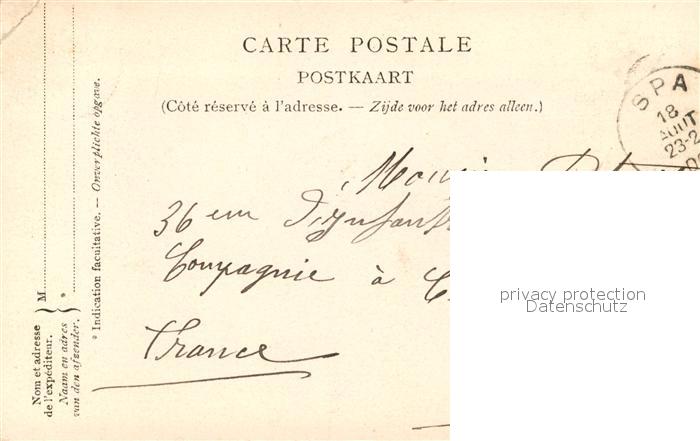 CARTE POSTALE
POSTKAART
(Côté réservé à l'adresse. — Zijde voor het adres alleen.)
SPA
18
AOUT
23-2
36 eme d'Infant
Compagnie à C
France
privacy protection
Datenschutz
* Indication facultative. — Onverplichte opgave.
M
*
Nom et adresse
de l'expéditeur.
Naam en adres
van den afzender.